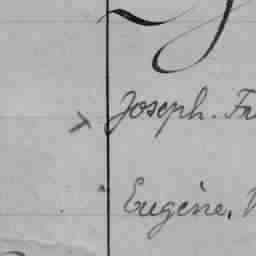 Joseph. Fr
Eugène.